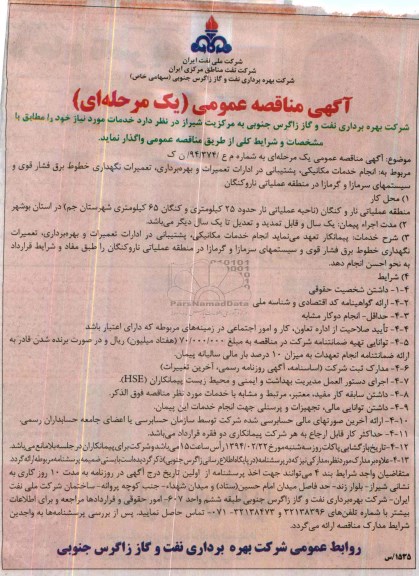 شرکت ملی نفت ایران
شرکت نفت مناطق مرکزی ایران
شرکت بهره برداری نفت و گاز زاگرس جنوبی (سهامی خاص)
آگهی مناقصه عمومی (یک مرحله‌ای)
شرکت بهره برداری نفت و گاز زاگرس جنوبی به مرکزیت شیراز در نظر دارد خدمات مورد نیاز خود را مطابق با
مشخصات و شرایط کلی از طریق مناقصه عمومی واگذار نماید.
موضوع: آگهی مناقصه عمومی یک مرحله‌ای به شماره م ع /۹۴/۳۷۴/ ن ک
مربوط به: انجام خدمات مکانیکی، پشتیبانی در ادارات تعمیرات و بهره‌برداری، تعمیرات نگهداری خطوط برق فشار قوی و
سیستمهای سرمازا و گرمازا در منطقه عملیاتی ناروکنگان
۱) محل کار
منطقه عملیاتی نار و کنگان (ناحیه عملیاتی نار حدود ۲۵ کیلومتری و کنگان ۶۵ کیلومتری شهرستان جم) در استان بوشهر
۲) مدت اجراء پیمان: یک سال و قابل تمدید و تعدیل تا یک سال دیگر می‌باشد.
۳) شرح خدمات: پیمانکار تعهد می‌نماید انجام خدمات مکانیکی، پشتیبانی در ادارات تعمیرات و بهره‌برداری، تعمیرات
نگهداری خطوط برق فشار قوی و سیستمهای سرمازا و گرمازا در منطقه عملیاتی ناروکنگان را طبق مفاد و شرایط قرارداد
به نحو احسن انجام دهد.
۴) شرایط
۴-۱- داشتن شخصیت حقوقی
۴-۲- ارائه گواهینامه کد اقتصادی و شناسه ملی
۴-۳- حداقل - انجام دوکار مشابه
۴-۴- تأیید صلاحیت از اداره تعاون، کار و امور اجتماعی در زمینه‌های مربوطه که دارای اعتبار باشد
۴-۵- توانایی تهیه ضمانتنامه شرکت در مناقصه به مبلغ ۷۰/۰۰۰/۰۰۰ (هفتاد میلیون) ریال و در صورت برنده شدن قادر به
ارائه ضمانتنامه انجام تعهدات به میزان ۱۰ درصد بار مالی سالیانه پیمان.
۴-۶- مدارک ثبت شرکت (اساسنامه، آگهی روزنامه رسمی، آخرین تغییرات)
۴-۷- اجرای دستور العمل مدیریت بهداشت و ایمنی و محیط زیست پیمانکاران (HSE).
۴-۸- داشتن سابقه کار مفید، معتبر، مرتبط و مشابه با خدمات مورد نظر مناقصه فوق الذکر.
۴-۹- داشتن توانایی مالی، تجهیزات و پرسنلی جهت انجام خدمات این پیمان.
۴-۱۰- ارائه آخرین صورتهای مالی حسابرسی شده شرکت توسط سازمان حسابرسی یا اعضای جامعه حسابداران رسمی.
۴-۱۱- حداکثر کار قابل ارجاع به هر شرکت پیمانکاری دو فقره قرارداد می‌باشد.
۴-۱۲- تاریخ بازگشایی پاکات روز سه‌شنبه مورخ ۱۳۹۴/۰۲/۲۲ رأس ساعت ۱۵ می‌باشد و شرکت برای پیمانکاران در جلسه بلامانع می‌باشد.
متقاضیان واجد شرایط بند ۴ می‌توانند جهت اخذ پرسشنامه از اولین تاریخ درج آگهی در روزنامه به مدت ۱۰ روز کاری به
نشانی شیراز- بلوار زند- حد فاصل میدان امام حسین(ستاد) و میدان شهدا- جنب کوچه پروانه- ساختمان شرکت ملی نفت
ایران- شرکت بهره‌برداری نفت و گاز زاگرس جنوبی طبقه ششم واحد ۶۰۷- امور حقوقی و قراردادها مراجعه و برای اطلاعات
بیشتر با شماره تلفن‌های ۳۲۱۳۸۳۹۶ و ۳۲۱۳۸۴۷۳ -۰۷۱ تماس حاصل نمایید. پس از بررسی پرسشنامه‌ها به واجدین
شرایط مدارک مناقصه ارائه می‌گردد.
روابط عمومی شرکت بهره برداری نفت و گاز زاگرس جنوبی
۱۵۳۵/س
ParsNamadData